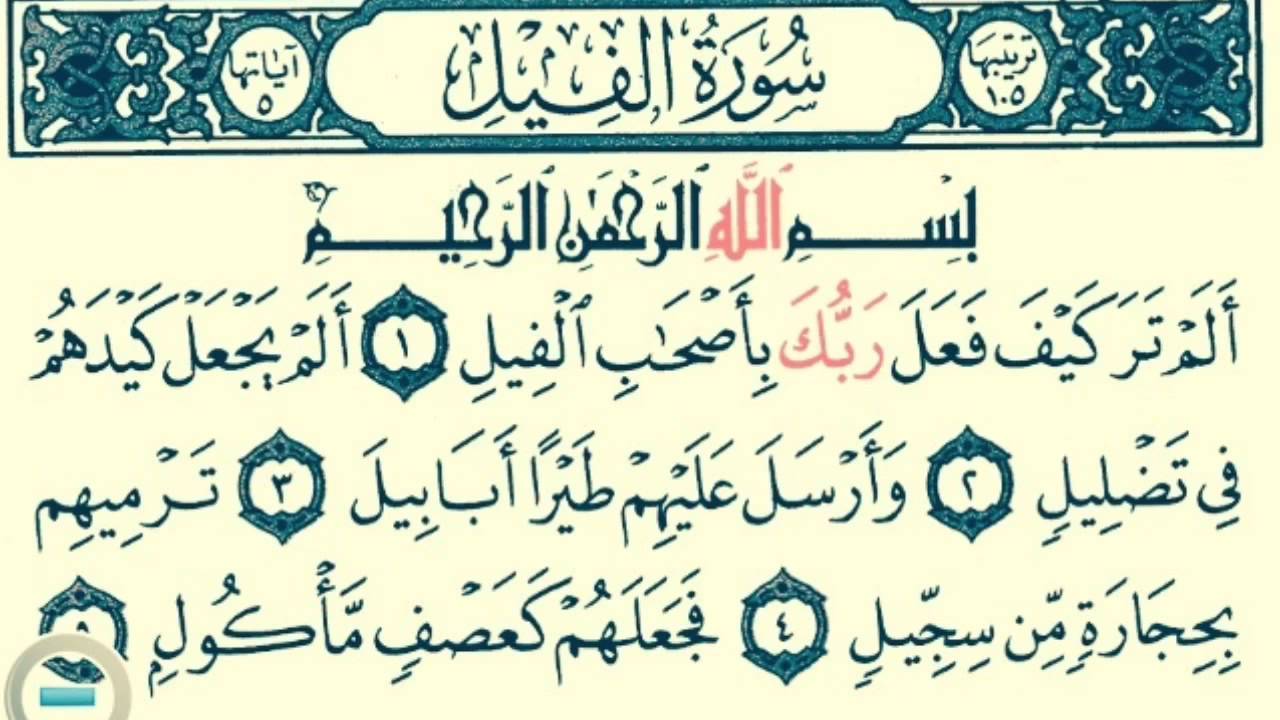 ترتيبها ١٠٥
سُورَةُ الفِيلِ
آياتها ٥
بِسْمِ اللَّهِ الرَّحْمَٰنِ الرَّحِيمِ
أَلَمْ تَرَ كَيْفَ فَعَلَ رَبُّكَ بِأَصْحَٰبِ ٱلْفِيلِ ١ أَلَمْ يَجْعَلْ كَيْدَهُمْ
فِى تَضْلِيلٍ ٢ وَأَرْسَلَ عَلَيْهِمْ طَيْرًا أَبَابِيلَ ٣ تَرْمِيهِم
بِحِجَارَةٍ مِّن سِجِّيلٍ ٤ فَجَعَلَهُمْ كَعَصْفٍ مَّأْكُولٍ ٥